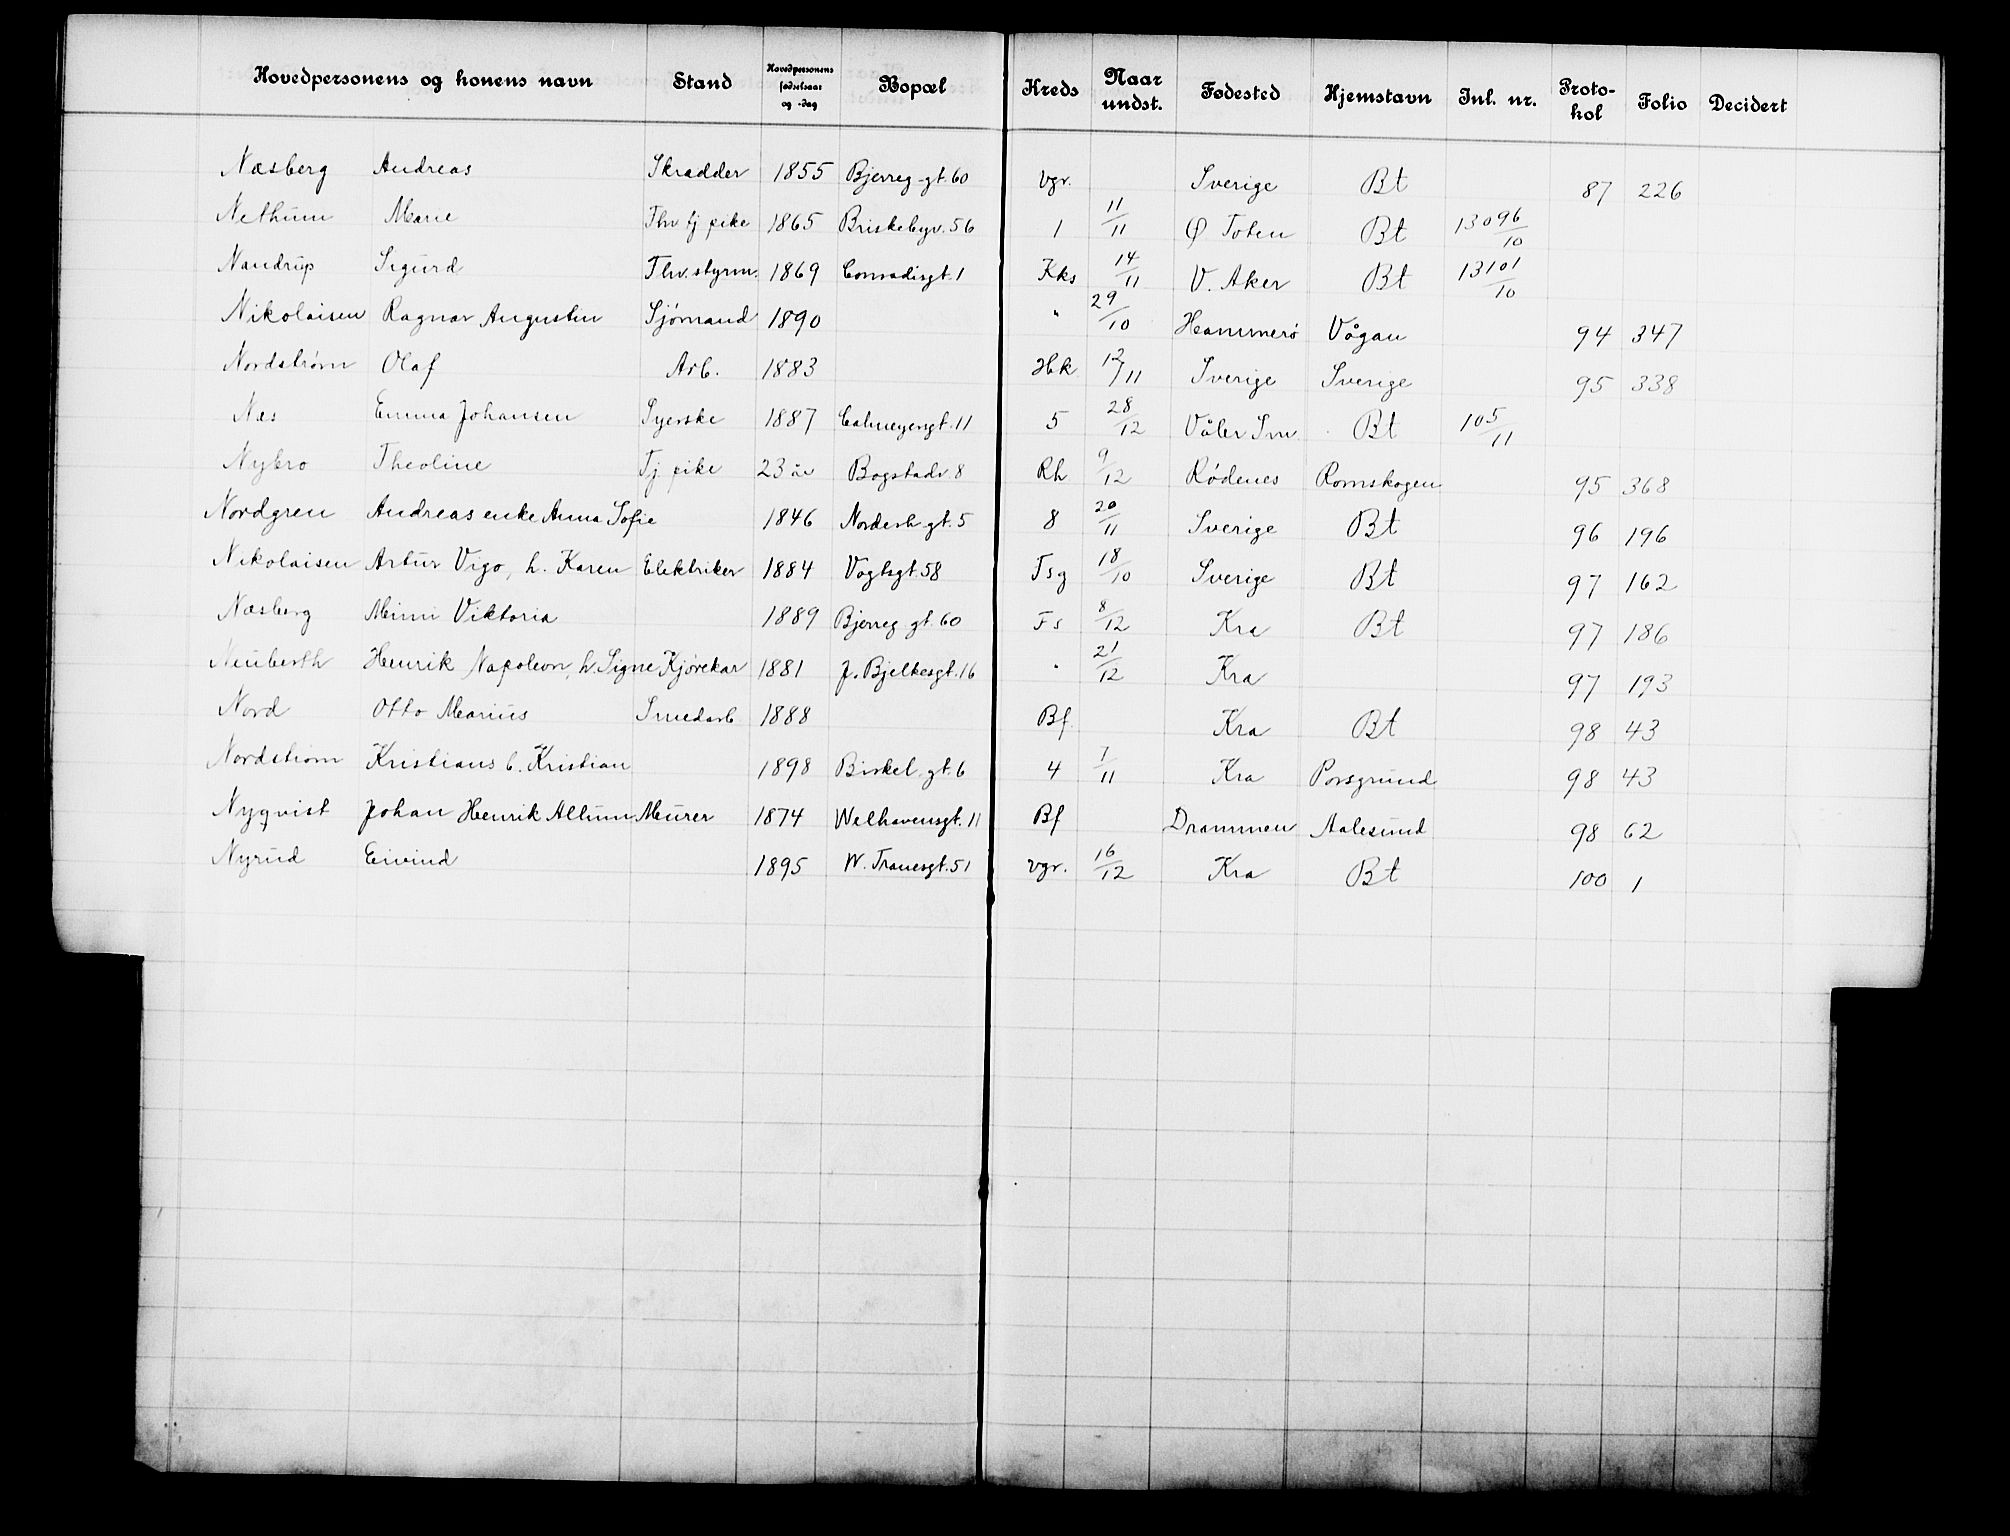 Hovedpersonens og konens navn Stand Hovedpersonens fødselsaar og -dag Bopæl Kreds Naar undst. Fødested Hjemstavn Inl. nr. Protokol Folio Decidert
Næsberg Andreas Skrædder 1855 Bjerreg-gt. 60 Vgr. Sverige Bt 87 226
Nethum Marie Fhv tj pike 1865 Briskebyv. 56 1 11/11 Ø Toten Bt 13096/10
Nandrup Sigurd Fhv. styrm. 1869 Conradisgt. 1 Kks 14/11 V. Aker Bt 13101/10
Nikolaisen Ragnar Augustin Sjømand 1890 " 29/10 Hammerø Vågan 94 347
Nordstrøm Olaf Arb. 1883 Hbk 12/11 Sverige Sverige 95 338
Næs Emma Johansen Syerske 1887 Calmeyersgt. 11 5 28/12 Våler Bt 105/11
Nybro Theoline Tj. pike 23 år Bogstadv. 8 Rh 9/12 Rødenes Romskogen 95 368
Nordgren Andreas enke Anna Sofie 1846 Norderh-gt. 5 8 20/11 Sverige Bt 96 196
Nikolaisen Artur Vigo, h. Karen Elektriker 1884 Vogtsgt. 58 Tsg 18/10 Sverige Bt 97 162
Næsberg Mimi Viktoria 1889 Bjerreg gt. 60 Fs 8/12 Kra Bt 97 186
Neuberth Henrik Napoleon, h. Signe Kjørekar 1881 J. Bjelkesgt. 16 " 21/12 Kra 97 193
Nord Otto Marius Smedarb 1888 Bf. Kra Bt 98 43
Nordstrøm Kristians b. Kristian 1898 Birkel.gt. 6 4 7/11 Kra Porsgrund 98 43
Nyqvist Johan Henrik Murer 1874 Welhavensgt. 11 Bf Drammen Aalesund 98 62
Nyrud Eivind 1895 W. Tranesgt. 51 Vgr. 16/12 Kra Bt 100 1